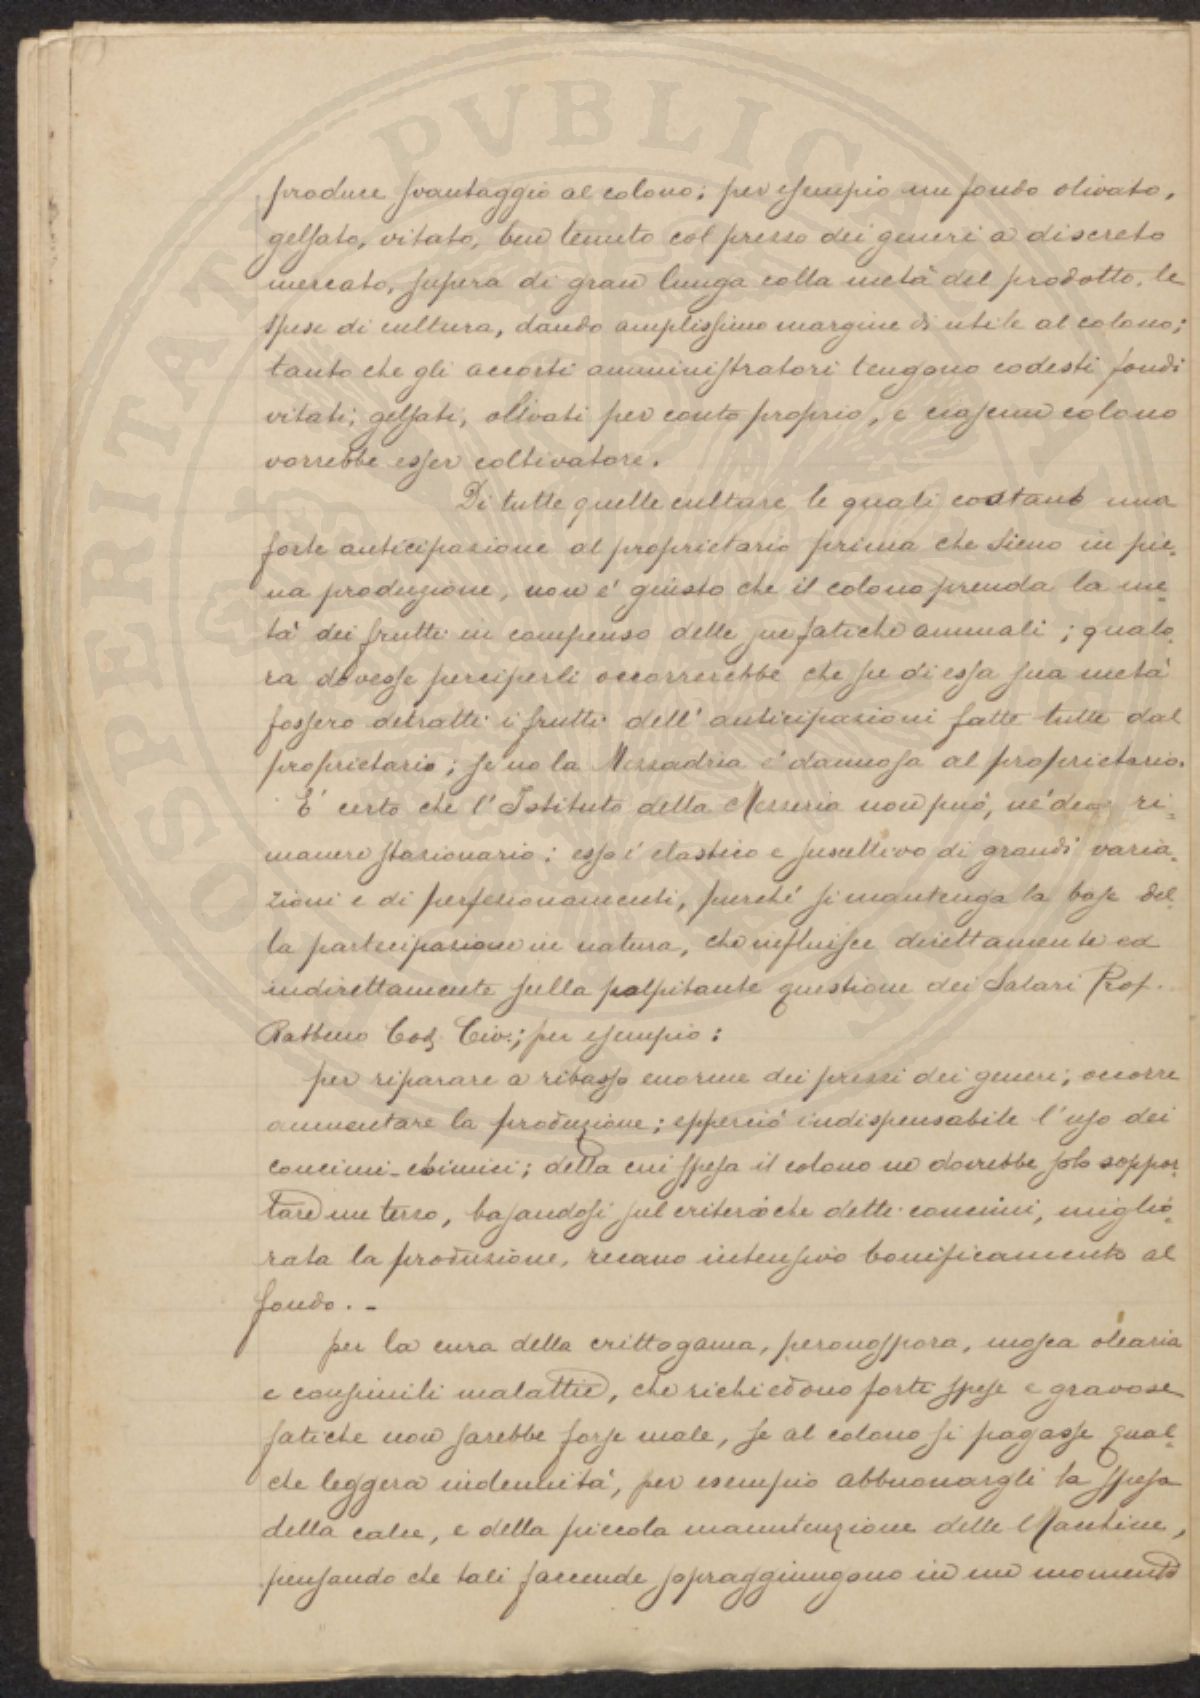 PROSPERITATI PVBLICAE AVGENDAE
produce svantaggio al colono; per esempio un fondo olivato,
gelsato, vitato, ben tenuto col prezzo dei generi a discreto
mercato, supera di gran lunga colla metà del prodotto, le
spese di cultura, dando amplissimo margine di utile al colono;
tanto che gli accorti amministratori tengono codesti fondi
vitati, gelsati, olivati per conto proprio, e ciascun colono
vorrebbe esser coltivatore.
Di tutte quelle culture le quali costano una
forte anticipazione al proprietario prima che sieno in pie-
na produzione, non é giusto che il colono prenda la me-
tà dei frutti in compenso delle sue fatiche annuali; qualo-
ra dovesse perciperli occorrerebbe che su di essa sua metà
fossero detratti i frutti dell'anticipazioni fatte tutte dal
proprietario; se no la Mezzadria é dannosa al proprietario.
É certo che l'Istituto della Mezzeria non può, né deve ri-
manere stazionario: esso é elastico e suscettivo di grandi varia-
zioni e di perfezionamenti, purché si mantenga la base del-
la partecipazione in natura, che influisce direttamente ed
indirettamente sulla palpitante questione dei Salari Prof.
Rabbeno Cod. Civ.; per esempio:
per riparare a ribasso enorme dei prezzi dei generi, occorre
aumentare la produzione; epperciò indispensabile l'uso dei
concimi-chimici; della cui spesa il colono ne dovrebbe solo soppor-
tare un terzo, basandosi sul criterio che detti concimi, miglio-
rata la produzione, recano intensivo bonificamento al
fondo. -
per la cura della crittogama, peronospora, mosca olearia
e consimili malattie, che richiedono forti spese e gravose
fatiche non sarebbe forse male, se al colono si pagasse qual-
che leggera indennità, per esempio abbuonargli la spesa
della calce, e della piccola manutenzione delle Mantine,
pensando che tali faccende sopraggiungono in un momento